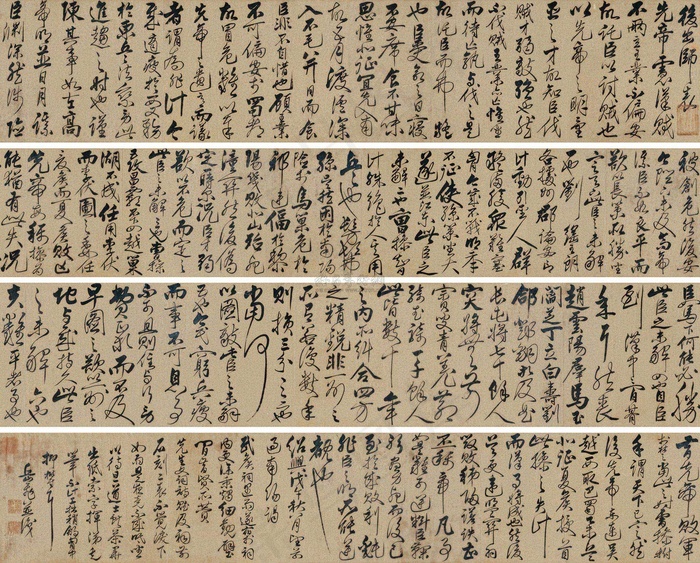 後出師表
先帝慮漢賊
不兩立王業不偏安
故託臣以討賊也
以先帝之明量
臣之才故知臣伐
賊才弱敵強也然
不伐賊王業亦亡惟坐
而待亡孰與伐之是
故託臣而弗疑
也臣受命之日寢
不安席食不甘味
思惟北征宜先入南
故五月渡瀘深
入不毛并日而食
臣非不自惜也顧王業
不可偏安於蜀都
故冒危難以奉
先帝之遺意而議
者謂為非計今
賊適疲於西又務
於東兵法乘勞此
進趨之時也謹
陳其事如左高
帝明並日月謀
臣淵深然涉險
被創危然後安
今陛下未及高帝
謀臣不如良平而
欲以長策取勝坐
定天下此臣之未解一
也劉繇王朗
各據州郡論安
計動引聖人群
疑滿腹眾難塞
胸今歲不戰明年
不征使孫策坐大
遂并江東此臣之
未解二也曹操智
計殊絕於人其用
兵也髣髴
孫吳然困於南陽
險於烏巢危於
祁連偪於黎
陽幾敗北山殆死
潼關然後偽
定一時爾況臣才弱而
欲以不危而定之
此臣之未解三也曹操
五攻昌霸不下四越巢
湖不成任用李服
而李服圖之委任
夏侯而夏侯敗亡
先帝每稱操為
能猶有此失況
臣駑下何能必勝
此臣之未解四也自臣
到漢中中間朞
年耳然喪
趙雲陽群馬玉
閻芝丁立白壽劉
郃鄧銅等及曲
長屯將七十餘人
突將無前
賨叟青羌散
騎武騎一千餘人
此皆數十年
之內所糾合四方
之精銳非一州之
所有若復數年
則損三分之二也
當何
以圖敵此臣之未解
五也今民窮兵疲
而事不可息事
不可息則住與行勞
費正等而不及
早圖之欲以一州之
地與賊持久此臣
之未解六也
夫難平者事也
昔先帝敗軍
於楚當此時曹操拊
手謂天下已定然
後先帝東連吳
越西取巴蜀舉兵
北征夏侯授首
此操之失計
而漢事將成也然後
吳更違盟關羽
毀敗秭歸蹉跌曹丕
稱帝凡事
如是難可逆料臣鞠
躬盡力死而後已
至於成敗利鈍
非臣之明所能逆
覩也
紹興戊午秋八月望前
過南陽謁
武侯祠遇雨遂宿於祠
內更深秉燭細觀壁
間昔賢所贊
先生文詞詩賦及祠前
石刻二表不覺淚下
如雨是夜竟不成眠坐
以待旦道士獻茶畢
出紙索字揮涕走
筆不計工拙稍舒胸中
抑鬱耳
岳飛並識